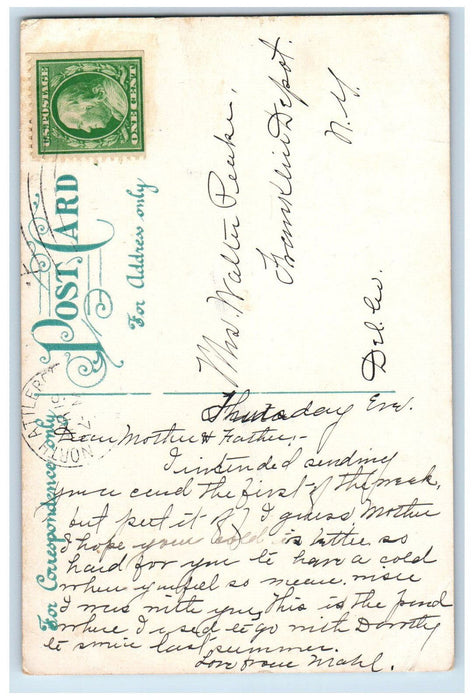 U.S. POSTAGE
ONE CENT
POST CARD
For Address only
For Correspondence only
NORTH ATTLEBORO
Mrs. Walter Peake,
Franklin Depot.
N.Y.
Del. Co.
Thursday Eve.
Dear Mother & Father,-
I intended sending
you a card the first of the week,
but put it off I guess Mother
I hope your cold is better so
hard for you to have a cold
when you feel so mean. wish
I was with you, This is the pond
where I used to go with Dorothy
to swim last summer.
Love from Mabl.